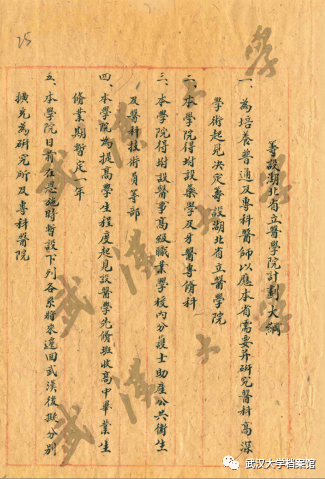 25
籌設湖北省立醫學院計劃大綱
一、為培養普通及專科醫師以應本省需要并研究醫科高深
學術起見决定籌設湖北省立醫學院
二、本學院得坿設藥學及牙醫專修科
三、本學院得坿設醫事高級職業學校內分護士助產公共衛生
及醫科技術員等部
四、本學院為提高學生程度起見設醫學先修班收高中畢業生
修業期暫定一年
五、本學院目前在恩施時暫設下列各系將來遷回武漢後擬分別
擴充為研究所及專科醫院
武汉大学档案馆